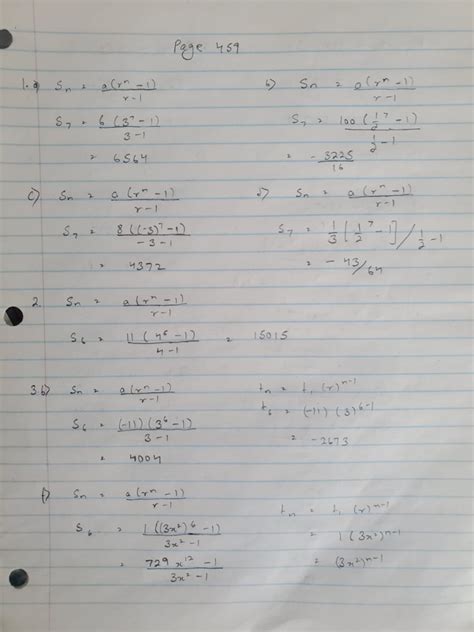 Page 459
1. a) Sn = a(r^n - 1) / r - 1
S7 = 6(3^7 - 1) / 3 - 1
= 6564
b) Sn = a(r^n - 1) / r - 1
S7 = 100(1/2^7 - 1) / 1/2 - 1
= - 3225/16
c) Sn = a(r^n - 1) / r - 1
S7 = 8((-3)^7 - 1) / -3 - 1
= 4372
d) Sn = a(r^n - 1) / r - 1
S7 = 1/3 [1/2^7 - 1] / 1/2 - 1
= - 43/64
2. Sn = a(r^n - 1) / r - 1
S6 = 11(4^6 - 1) / 4 - 1 = 15015
3. b) Sn = a(r^n - 1) / r - 1
S6 = (-11)(3^6 - 1) / 3 - 1
= 4004
tn = t1 (r)^n-1
t6 = (-11)(3)^6-1
= -2673
f) Sn = a(r^n - 1) / r - 1
S6 = 1((3x²)^6 - 1) / 3x² - 1
= 729x^12 - 1 / 3x² - 1
tn = t1 (r)^n-1
= 1(3x²)^n-1
= (3x²)^n-1